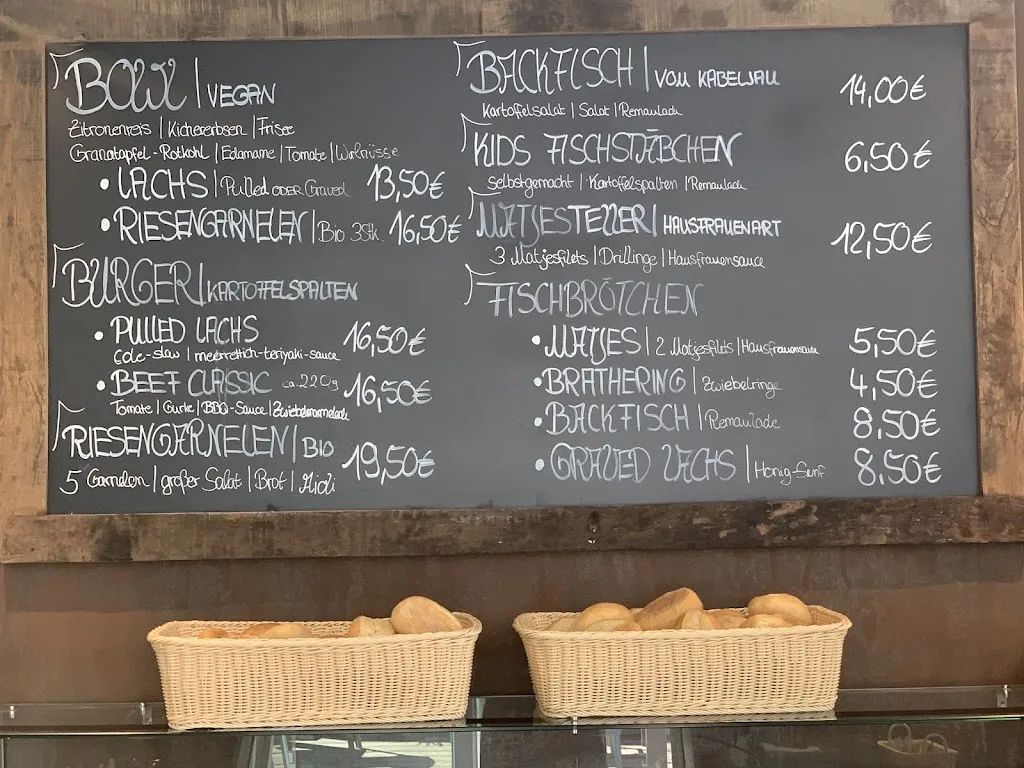 BOWL | VEGAN
Zitronenreis | Kichererbsen | Frisee
Granatapfel-Rotkohl | Edamame | Tomate | Walnüsse
• LACHS | Pulled ODER Graved 13,50€
• RIESENGARNELEN | Bio 3Stk. 16,50€
BURGER | KARTOFFELSPALTEN
• PULLED LACHS 16,50€
Cole-slaw | meerrettich-teriyaki-sauce
• BEEF CLASSIC ca.220g 16,50€
Tomate | Gurke | BBQ-Sauce | Zwiebelmarmelade
RIESENGARNELEN | BIO 19,50€
5 Garnelen | großer Salat | Brot | Aioli
BACKFISCH | VOM KABELJAU 14,00€
Kartoffelsalat | Salat | Remoulade
KIDS FISCHSTÄBCHEN 6,50€
selbstgemacht | Kartoffelspalten | Remoulade
MATJESTELLER | HAUSFRAUENART 12,50€
3 Matjesfilets | Drillinge | Hausfrauensauce
FISCHBRÖTCHEN
• MATJES | 2 Matjesfilets | Hausfrauensauce 5,50€
• BRATHERING | Zwiebelringe 4,50€
• BACKFISCH | Remoulade 8,50€
• GRAVED LACHS | Honig-Senf 8,50€